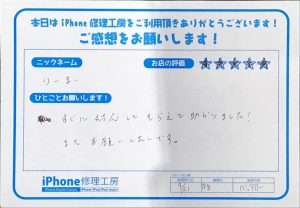 本日は iPhone 修理工房をご利用頂きありがとうございます！
ご感想をお願いします！
ニックネーム
お店の評価
りーまー
ひとことお願いします！
すぐに対応してもらえて助かりました！
またお願いしたいです。
iPhone修理工房
修理内容
バッテリー